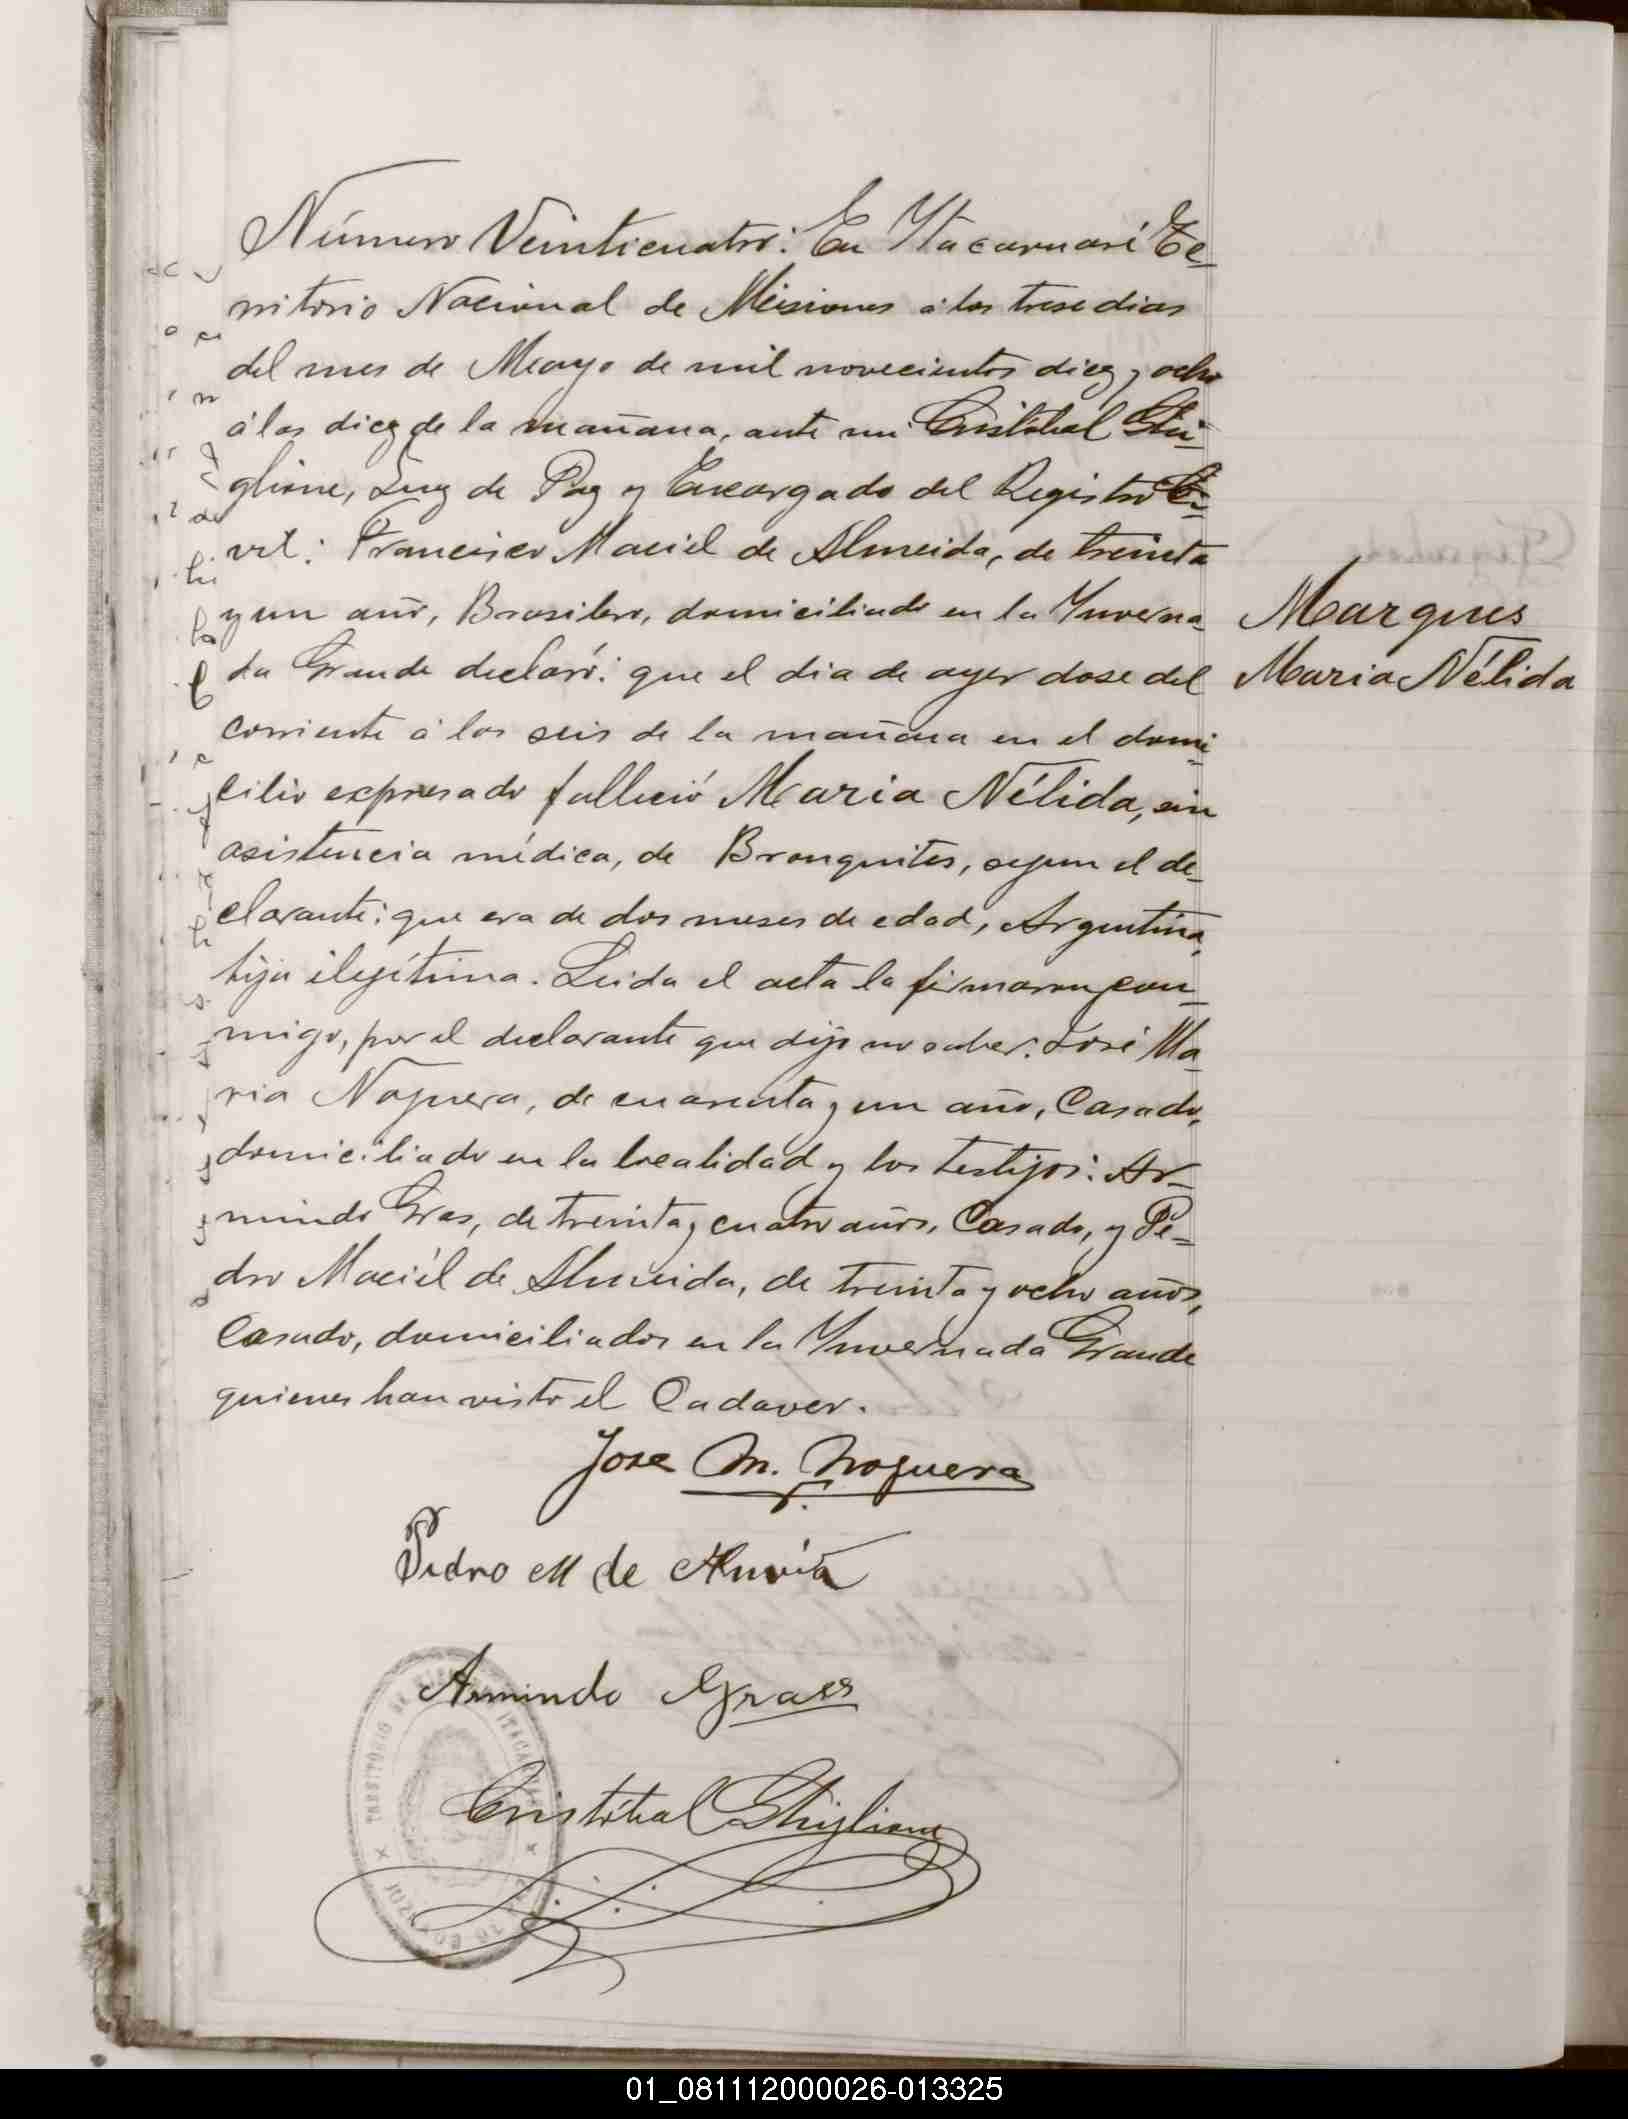 Número Veinticuatro: En Ytacaruaré Te-
rritorio Nacional de Misiones á los trese dias
del mes de Mayo de mil novecientos diez y ocho
á las diez de la mañana, ante mi Cristóbal Ghi-
glione, Juez de Paz y Encargado del Registro Ci-
vil: Francisco Maciel de Almeida, de treinta
y un año, Brasilero, domiciliado en la Ynverna-
da Grande declaró: que el dia de ayer dose del
corriente á las seis de la mañana en el domi-
cilio expresado falleció Maria Nélida, sin
asistencia médica, de Bronquites, segun el de-
clarante: que era de dos meses de edad, Argentina,
hija ilegítima. Leida el acta la firmaron con-
migo, por el declarante que dijo no saber: José Ma-
ria Noguera, de cuarenta y un año, Casado,
domiciliado en la localidad y los testijos: Ar-
mindo Gras, de treinta y cuatro años, Casado, y Pe-
dro Maciél de Almeida, de treinta y ocho años,
Casado, domiciliados en la Ynvernada Grande
quienes han visto el Cadaver.
Marques
Maria Nélida
Jose M. Noguera
Pedro M de
Armindo Grass
Cristóbal Ghiglione
TERRITORIO DE MISIONES
01_081112000026-013325